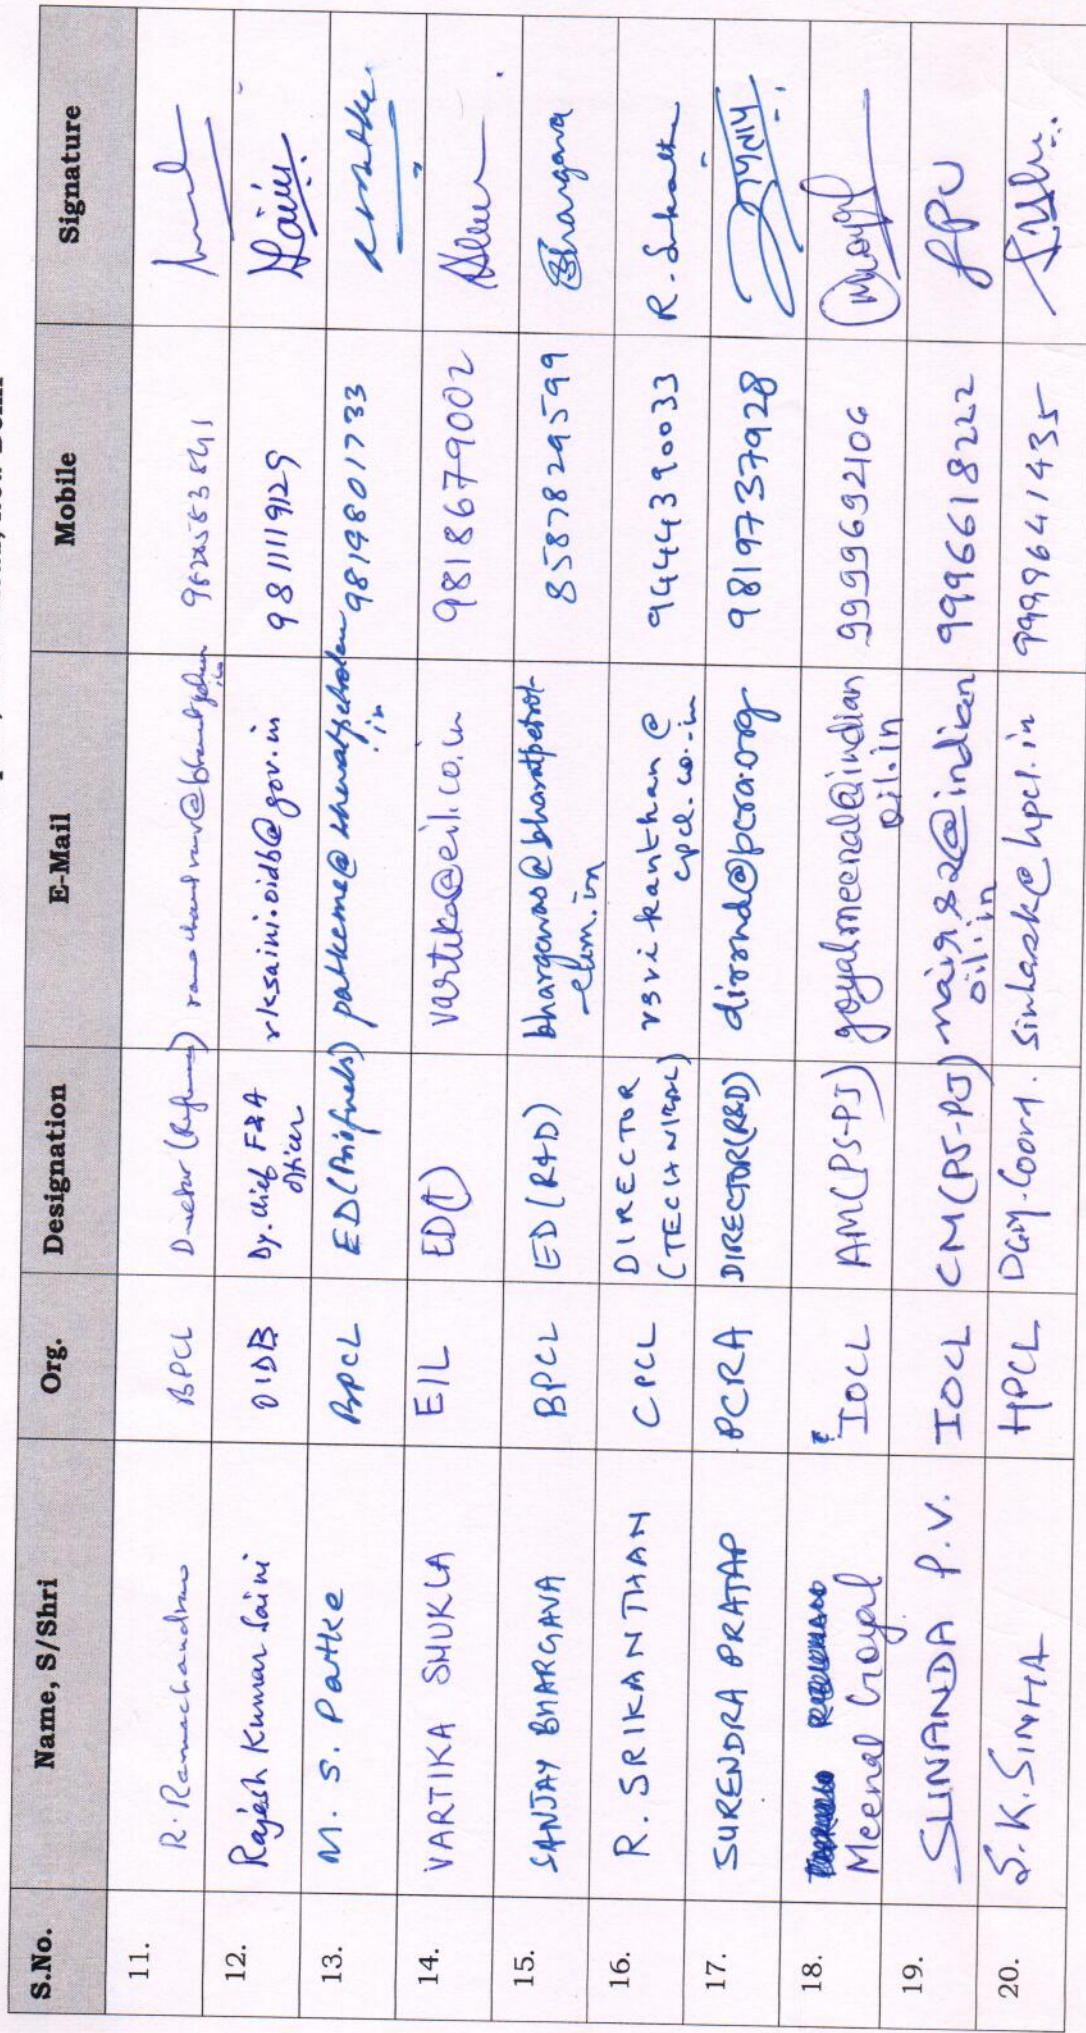 S.No. Name, S/Shri Org. Designation E-Mail Mobile Signature
11. R. Ramachandran BPCL Director (Refineries)
12. Rajesh Kumar Saini OIDB Dy. Chief F&A rksaini.oidb@gov.in 9811119129 Saini
Officer
13. M. S. Patke BPCL ED(Biofuels) patkems@bharatpetroleum 9819801733
.in
14. VARTIKA SHUKLA EIL ED(T) vartika@eil.co.in 9818679002
15. SANJAY BHARGAVA BPCL ED (R&D) bhargavas@bharatpetrol- 8587829599 Bhargava
-eum.in
16. R. SRIKANTHAN CPCL DIRECTOR rsrikanthan@ 9444390033
(TECHNICAL) cpcl.co.in
17. SURENDRA PRATAP PCRA DIRECTOR(R&D) dirrnd@pcra.org 9819737928
18. Meenal Goyal IOCL AM(PS-PJ) goyalmeenal@indian 9999692106
oil.in
19. SUNANDA P.V. IOCL CM(PS-PJ) nairs2@indian 9996618222
oil.in
20. S.K. SINHA HPCL DGM-Coord. sinhask@hpcl.in 9999641435